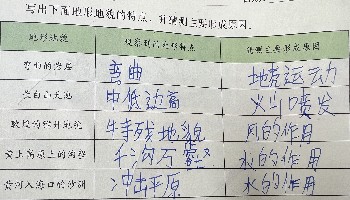 写出下面地形地貌的特点，并猜测主要形成原因。
地形地貌 观察到的地形特点 猜测主要形成原因
弯曲的岩层 弯曲 地壳运动
长白山天池 中低边高 火山口喷发
敦煌的雅丹地貌 特殊地貌 风的作用
黄土高原上的沟壑 千沟万壑 水的作用
黄河入海口的沙洲 冲击平原 水的作用